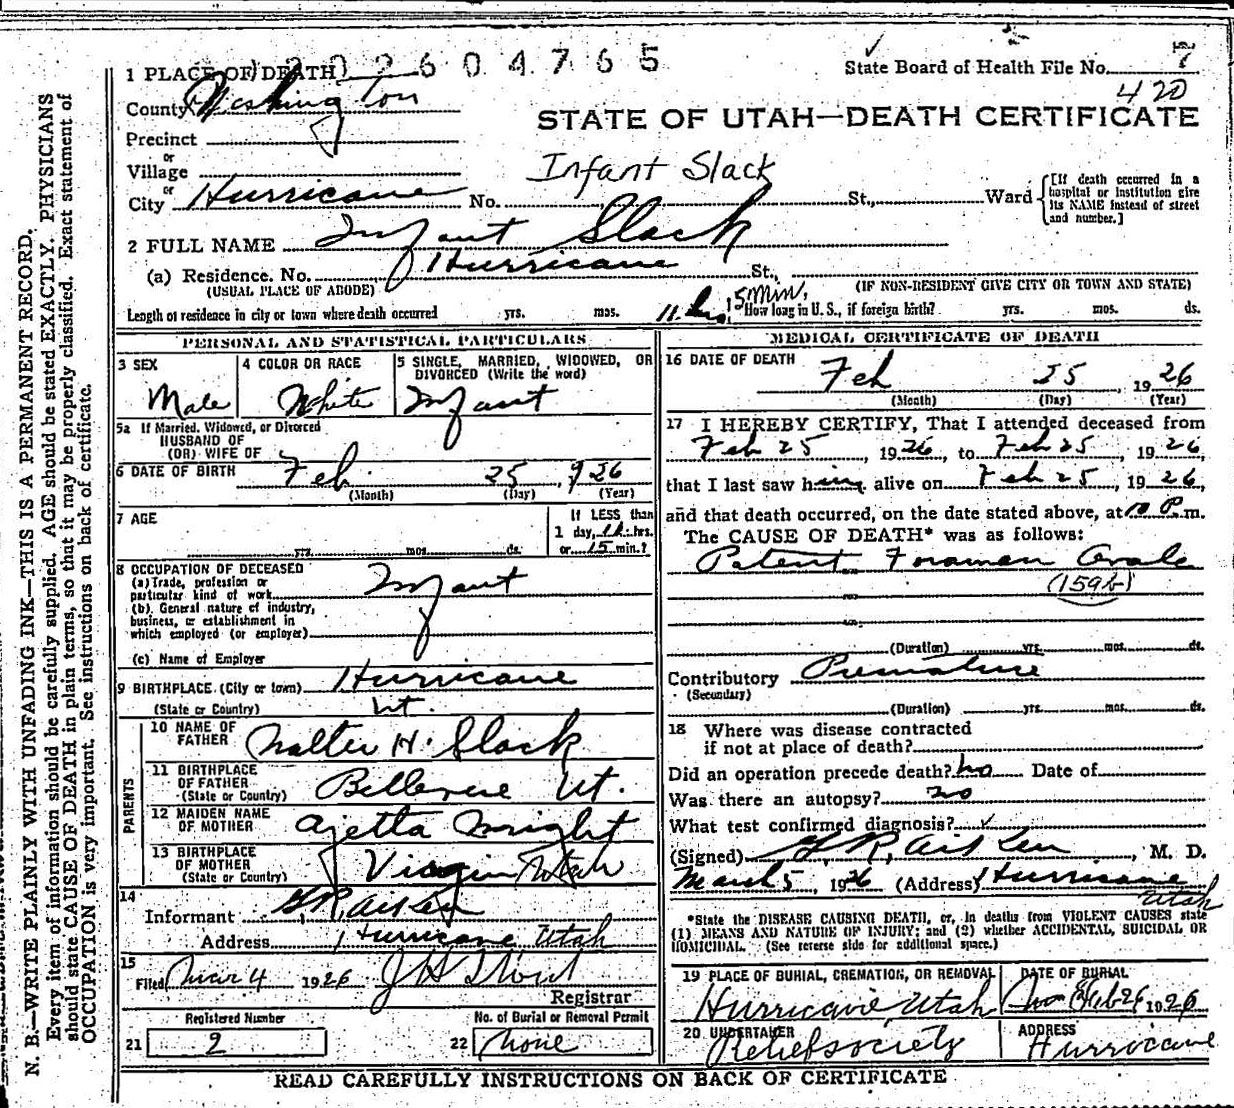 202604765
State Board of Health File No. 7
420
1 PLACE OF DEATH
County Washington
STATE OF UTAH—DEATH CERTIFICATE
Precinct
or
Village
Infant Slack
or
City Hurricane No. St., Ward
[If death occurred in a
hospital or institution give
its NAME instead of street
and number.]
2 FULL NAME Infant Slack
(a) Residence. No. Hurricane St.,
(USUAL PLACE OF ABODE) (IF NON-RESIDENT GIVE CITY OR TOWN AND STATE)
Length of residence in city or town where death occurred yrs. mos. 11 hrs 15 min. How long in U. S., if foreign birth? yrs. mos. ds.
PERSONAL AND STATISTICAL PARTICULARS
3 SEX
Male
4 COLOR OR RACE
White
5 SINGLE, MARRIED, WIDOWED, OR
DIVORCED (Write the word)
Infant
5a If Married, Widowed, or Divorced
HUSBAND OF
(OR) WIFE OF
6 DATE OF BIRTH Feb. 25, 1926
(Month) (Day) (Year)
7 AGE
yrs. mos. ds.
If LESS than
1 day, 11 hrs.
or 15 min.?
8 OCCUPATION OF DECEASED
(a) Trade, profession or
particular kind of work Infant
(b) General nature of industry,
business, or establishment in
which employed (or employer)
(c) Name of Employer
9 BIRTHPLACE (City or town) Hurricane
(State or Country) Ut.
PARENTS
10 NAME OF
FATHER Walter H. Slack
11 BIRTHPLACE
OF FATHER
(State or Country) Bellevue Ut.
12 MAIDEN NAME
OF MOTHER Ajetta Wright
13 BIRTHPLACE
OF MOTHER
(State or Country) Virgin Utah
14
Informant G R Aiken
Address Hurricane Utah
15
Filed Mar 4 1926
Registrar
Registered Number
21 2
No. of Burial or Removal Permit
22 None
MEDICAL CERTIFICATE OF DEATH
16 DATE OF DEATH
Feb 25, 1926
(Month) (Day) (Year)
17 I HEREBY CERTIFY, That I attended deceased from
Feb 25 1926, to Feb 25, 1926,
that I last saw him alive on Feb 25, 1926,
and that death occurred, on the date stated above, at 10 P. m.
The CAUSE OF DEATH* was as follows:
Patent Foramen Ovale
(159b)
(Duration) yrs. mos. ds.
Contributory Premature
(Secondary)
(Duration) yrs. mos. ds.
18 Where was disease contracted
if not at place of death?
Did an operation precede death? no Date of
Was there an autopsy? no
What test confirmed diagnosis? ✓
(Signed) G R. Aiken, M. D.
March 5, 1926 (Address) Hurricane
Utah
*State the DISEASE CAUSING DEATH, or, in deaths from VIOLENT CAUSES state
(1) MEANS AND NATURE OF INJURY; and (2) whether ACCIDENTAL, SUICIDAL OR
HOMICIDAL. (See reverse side for additional space.)
19 PLACE OF BURIAL, CREMATION, OR REMOVAL
Hurricane Utah
DATE OF BURIAL
Feb 26 1926
20 UNDERTAKER
Relief society
ADDRESS
Hurricane
READ CAREFULLY INSTRUCTIONS ON BACK OF CERTIFICATE
N. B.—WRITE PLAINLY WITH UNFADING INK—THIS IS A PERMANENT RECORD.
Every item of information should be carefully supplied. AGE should be stated EXACTLY. PHYSICIANS
should state CAUSE OF DEATH in plain terms, so that it may be properly classified. Exact statement of
OCCUPATION is very important. See instructions on back of certificate.